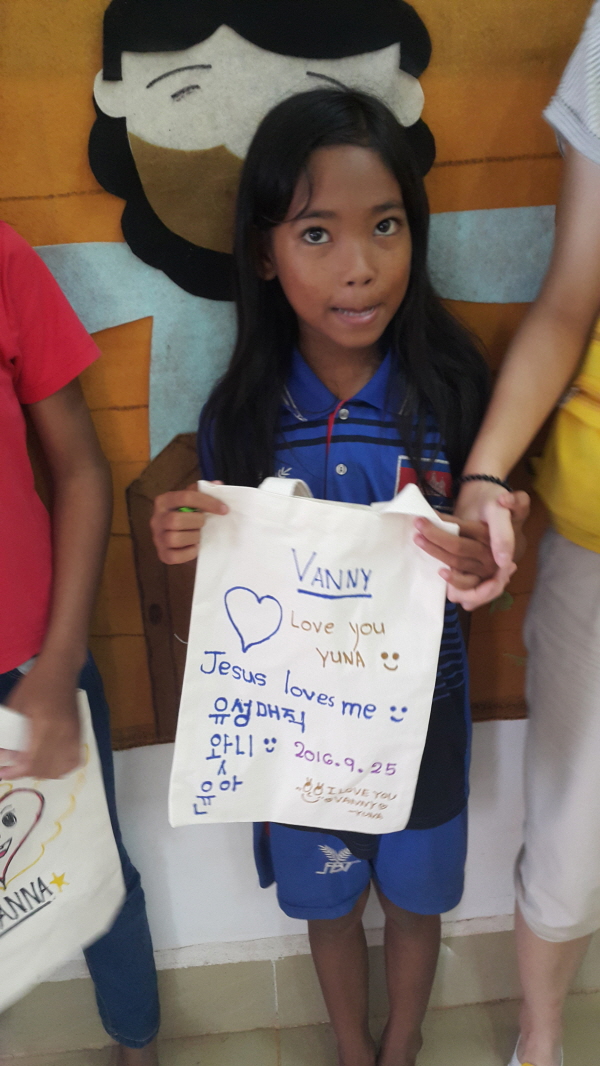 VANNY
Love you
YUNA
Jesus loves me
유성매직
왓니
2016.9.25
윤아
I LOVE YOU
VANNY
-YUNA
ANNA
FBT